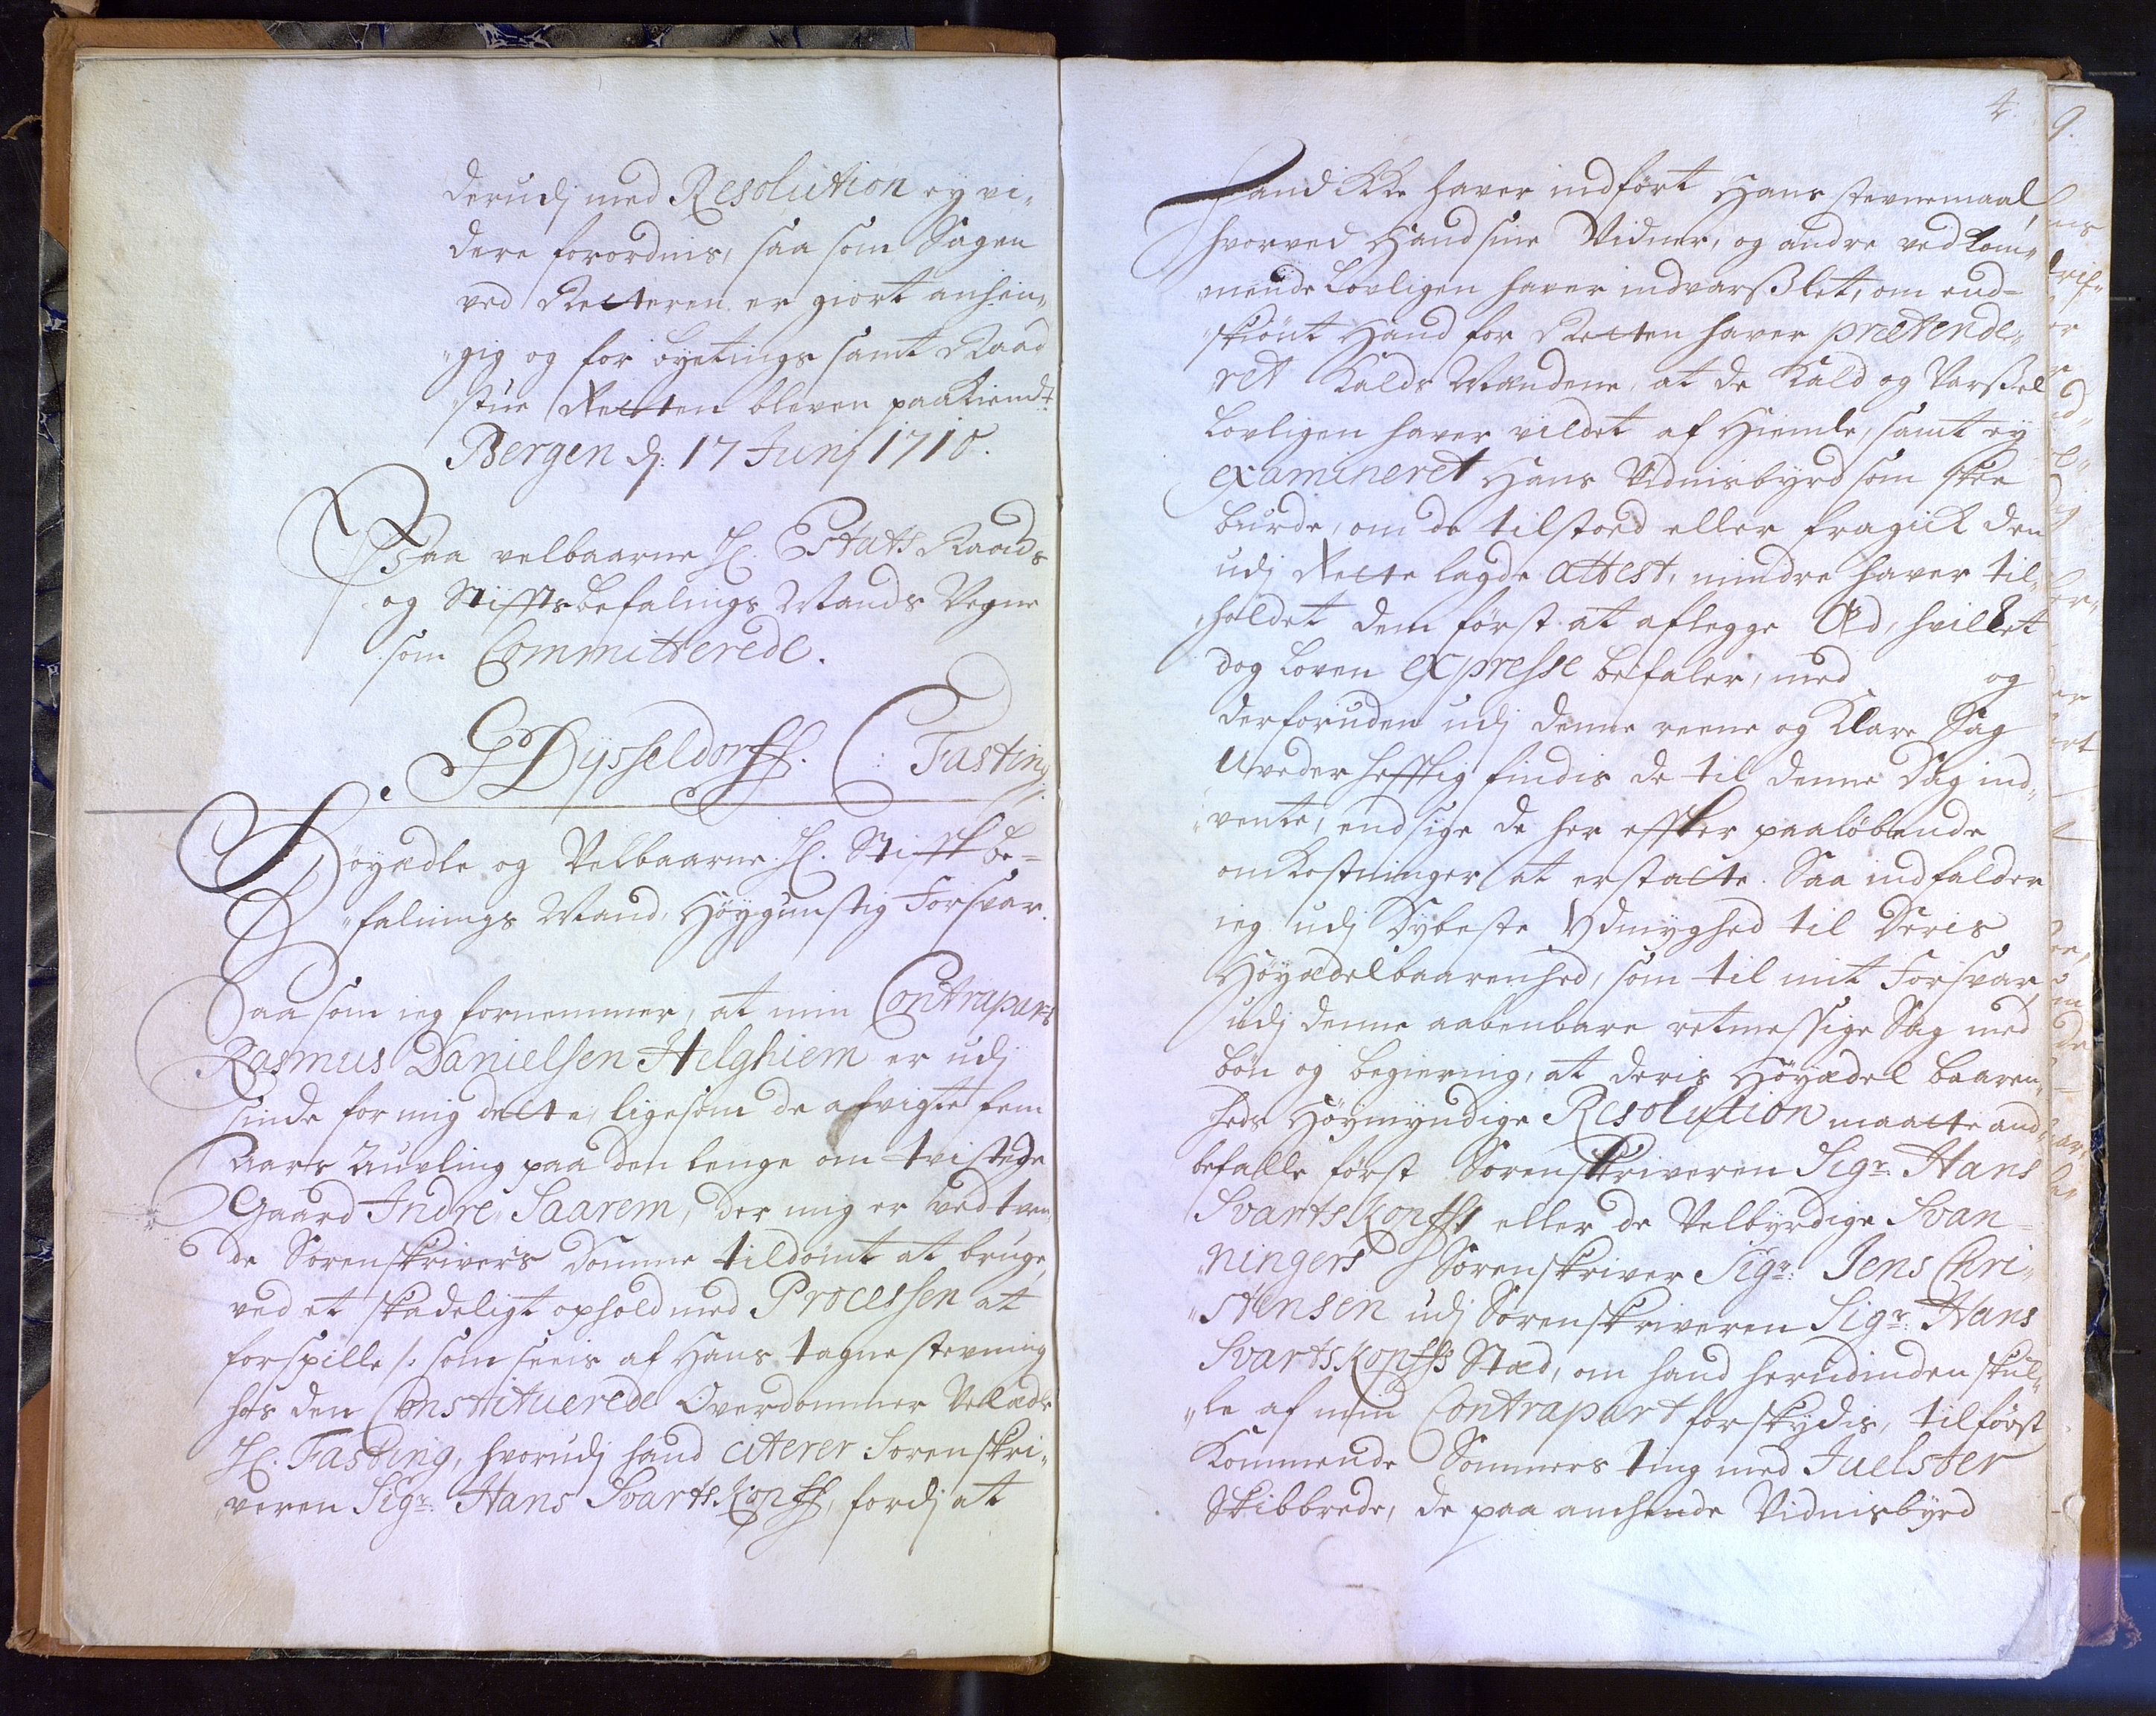 derudj med Resolution ey vi„
dere forordnis, saa som Sagen
ved Retteren er giort anhen„
„gig og for byetings samt Raad
stue Retten bleven paakiendt
Bergen dj: 17 Junj 1710.
Paa velbaarne H. Etats Raads
og Stifftsbefalings Mands Vegne
som Committerede.
G Dysseldorff. C: Fasting
Høyædle og Velbaarne H. Stifftbe=
„falnings Mand, Høygunstig Forsvar.
Saa som ieg fornemmer, at min Contraparts
Rasmus Danielsen Helghiem er udj
sinde for mig dette, ligesom de afvigte fem
Aars Auvling paa den lenge om tvistede
Gaard Indre Saarem, der mig er ved tven„
de Sorenskrivers Domme tildømt at bruge,
ved et skadeligt ophold med Processen at
forspille /: som sees af Hans tagne stevning
hos den Constituerede Overdommer Velædle
H. Fasting, hvorudj hand citerer Sorenskri„
„veren Sigr: Hans Svartskopff, fordj at
4.
Hand icke haver indført Hans stevnemaal,
hvorved Hand sine Vidner, og andre vedkom„
„mende Lovligen haver indvarßlet, om end=
„skiønt Hand for Retten haver prætende„
ret Kalds Mændene, at de Kald og Varßel
Lovligen haver vildet af Hiemle, samt ey
examineret Hans Vidnisbyrd som skee
burde, om de tilstoed eller fragick den
udj Rette lagde attest, mindre haver til„
„holdet dem først at aflegge Æd, hvilket
dog Loven expresse befaler, med og
derforuden udj denne reene og Klare Sag
Uvederhefftig findis de til denne Dag ind„
„vente, endsige de her effter paaløbende
omkostninger at erstatte. Saa indfalder
ieg udj Dybeste Ydmyghed til Deris
Høyædelbaarenhed, som til mit Forsvar,
udj denne aabenbare retmessige Sag med
bøn og begiering, at deris Høyædel baaren„
heds Høymyndige Resolution maatte and„
befalle først Sorenskriveren Sigr: Hans
Svartskopff eller de Velbyrdige Svan=
„ningers Sorenskriver Sigr: Jens Chri„
„stensen udj Sorenskriveren Sigr: Hans
Svartskopffs Sted, om hand herudinden skul„
„le af min Contrapart forskydis, til først
Kommende Sommers ting med Juelster
Skibbrede, de paa anchende Vidnisbyrd